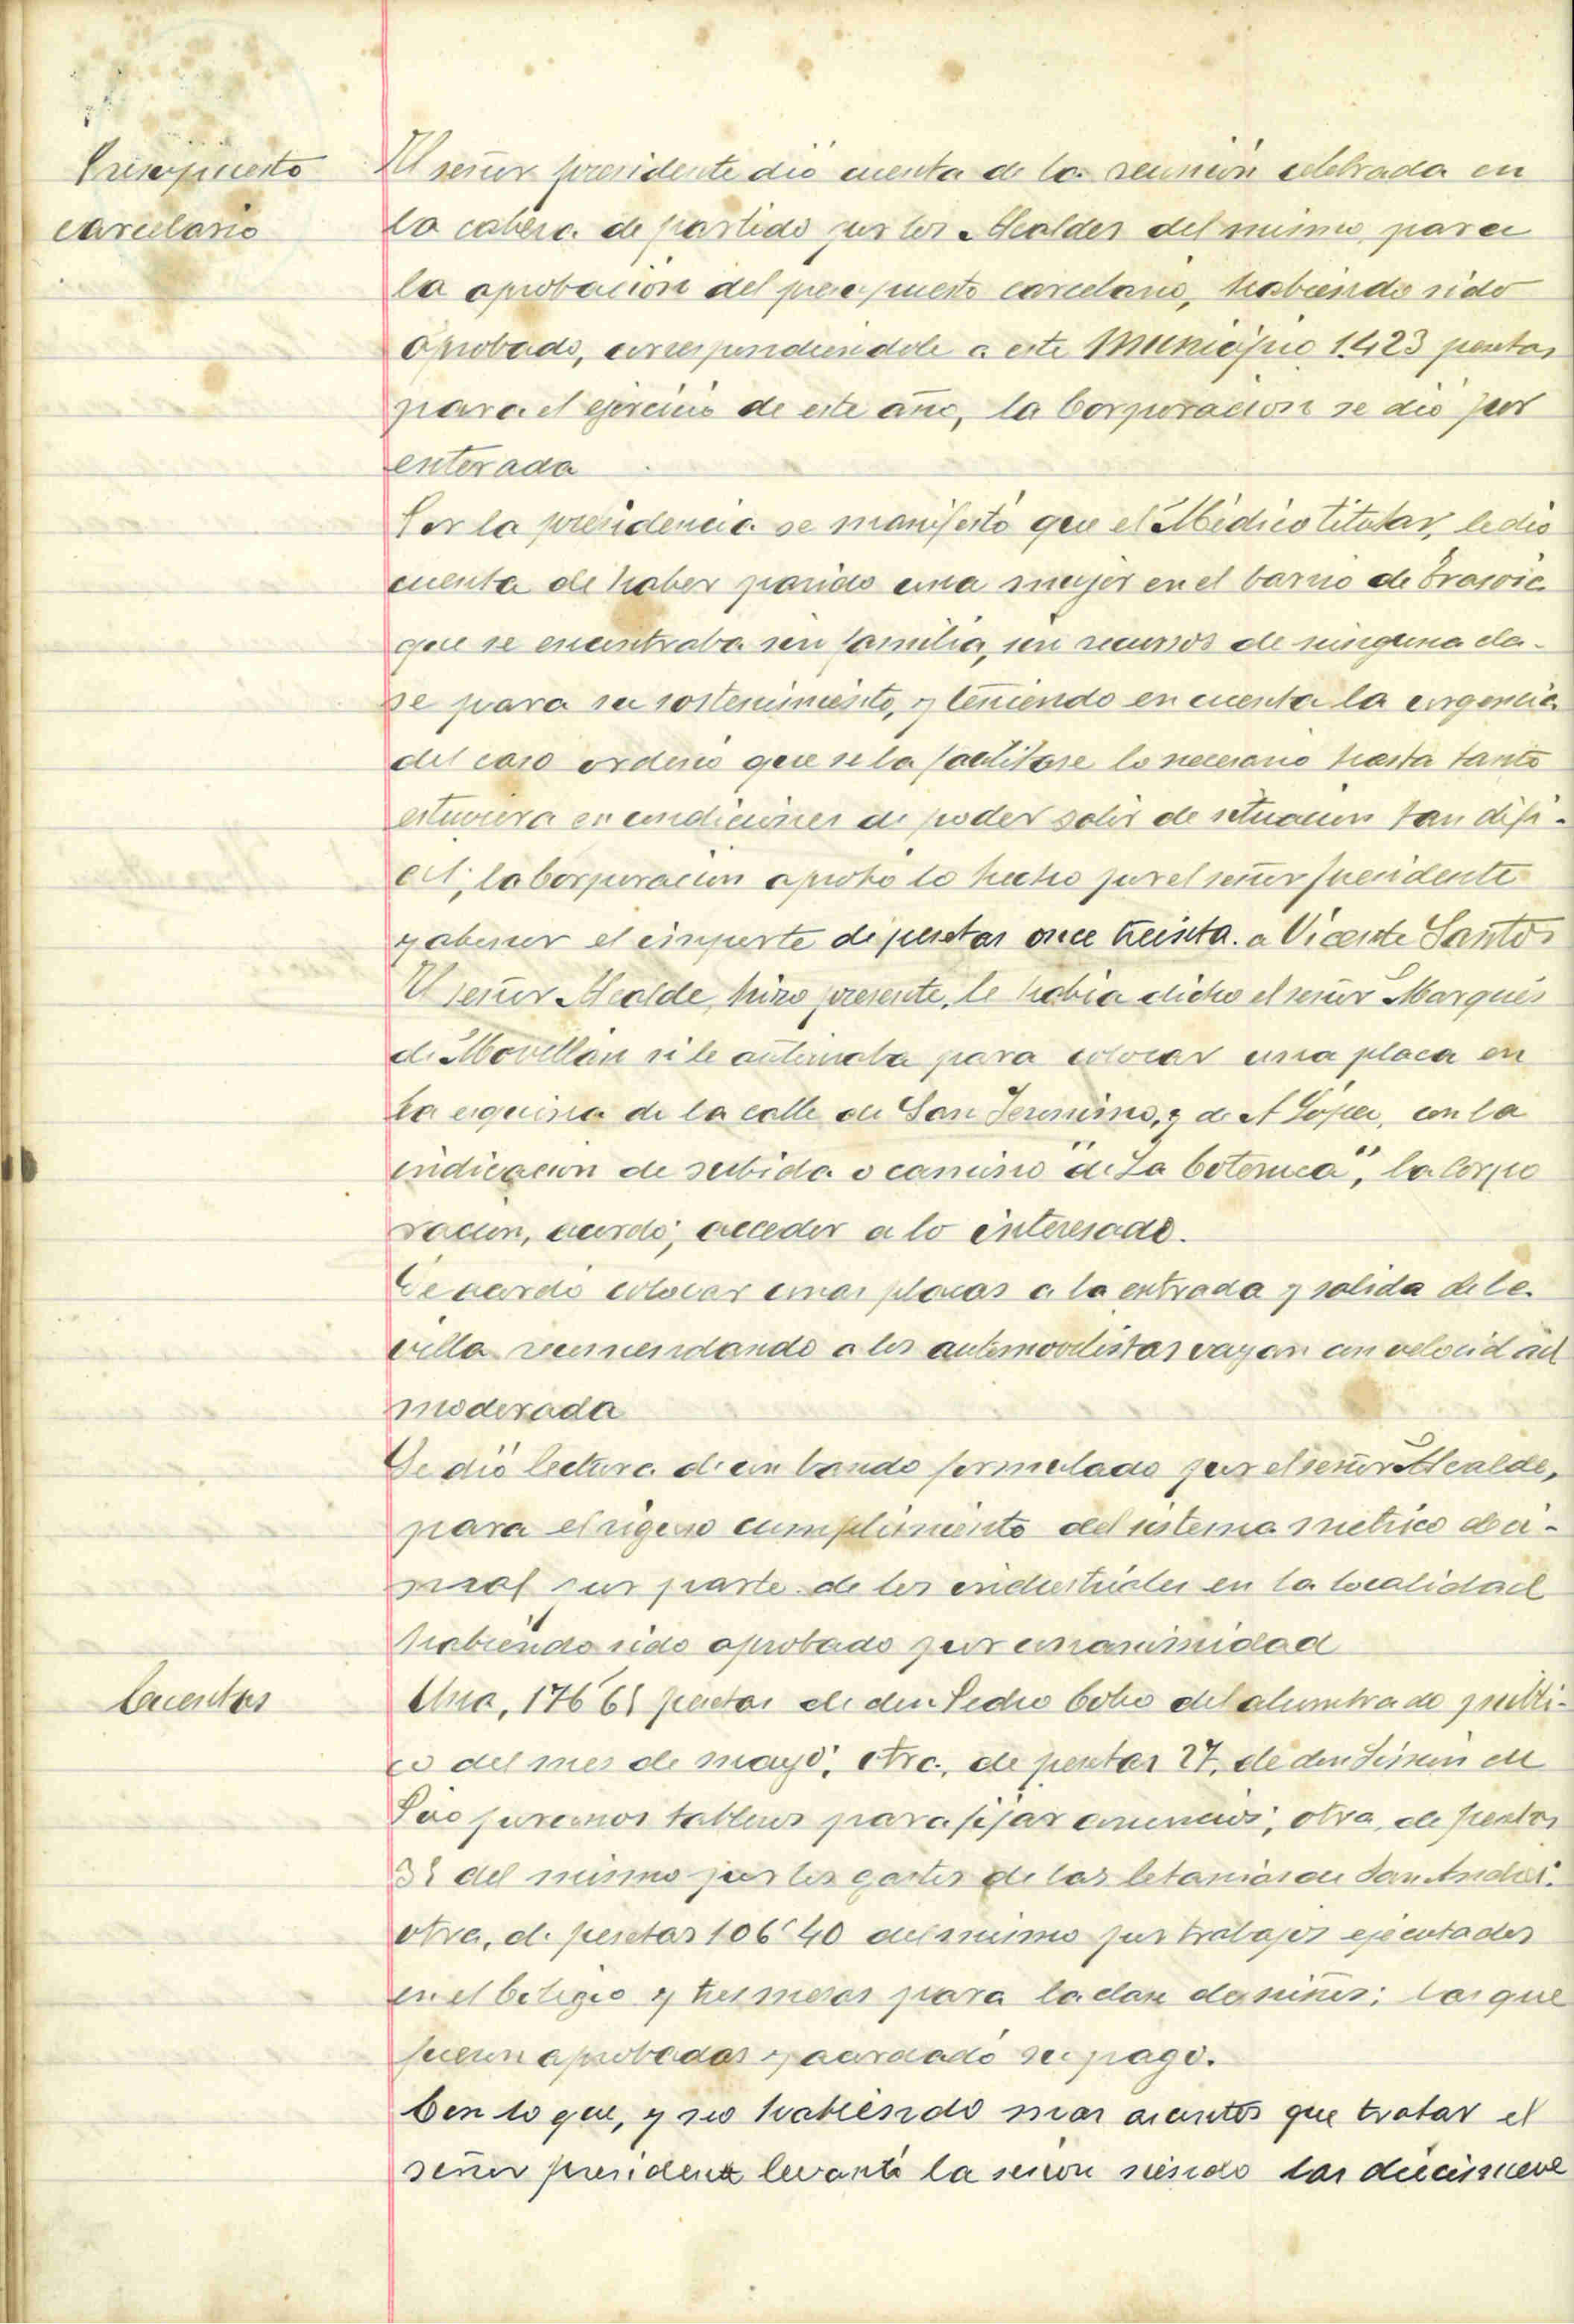 Presupuesto
carcelario
El señor presidente dió cuenta de la reunión celebrada en
la cabeza de partido por los Alcaldes del mismo, para
la aprobacion del presupuesto carcelario, habiendo sido
aprobado, correspondiendole a este Municipio 1.423 pesetas
para el ejercicio de este año, la Corporacion se dió por
enterada
Por la presidencia se manifestó que el Médico titular, le dio
cuenta de haber parido una mujer en el barrio de
que se encontraba sin familia, sin recursos de ninguna cla-
se para su sostenimiento, y teniendo en cuenta la urgencia
del caso ordenó que se la facilitase lo necesario hasta tanto
estuviera en condiciones de poder salir de situacion tan difi-
cil; la Corporacion aprobó lo hecho por el señor presidente
y abonar el importe de pesetas once treinta a Vicente Santos
El señor Alcalde, hizo presente, le habia dicho el señor Marqués
de Movellán si le autorizaba para colocar una placa en
la esquina de la calle de San Jeronimo, y de A López, con la
indicacion de subida o camino "de La Coteruca", la Corpo
racion, acordó, acceder a lo interesado.
Se acordó colocar unas placas a la entrada y salida de la
villa recomendando a los automovilistas vayan con velocidad
moderada
Se dió lectura de un bando formulado por el señor Alcalde,
para el rigoroso cumplimiento del sistema metrico deci-
mal por parte de los industriales en la localidad
habiendo sido aprobado por unanimidad
Cuentas
Una, 176'61 pesetas de don Pedro Cobo del alumbrado públi-
co del mes de mayo; otra, de pesetas 27, de don Simon de
Pío por unos tableros para fijar anuncios; otra, de pesetas
del mismo por los gastos de las letanias de San Andrés;
otra, de pesetas 106'40 del mismo por trabajos ejecutados
en el Colegio y tres mesas para la clase de niños; las que
fueron aprobadas y acordado su pago.
Con lo que, y no habiendo mas asuntos que tratar el
señor presidente levantó la sesion siendo las diecinueve